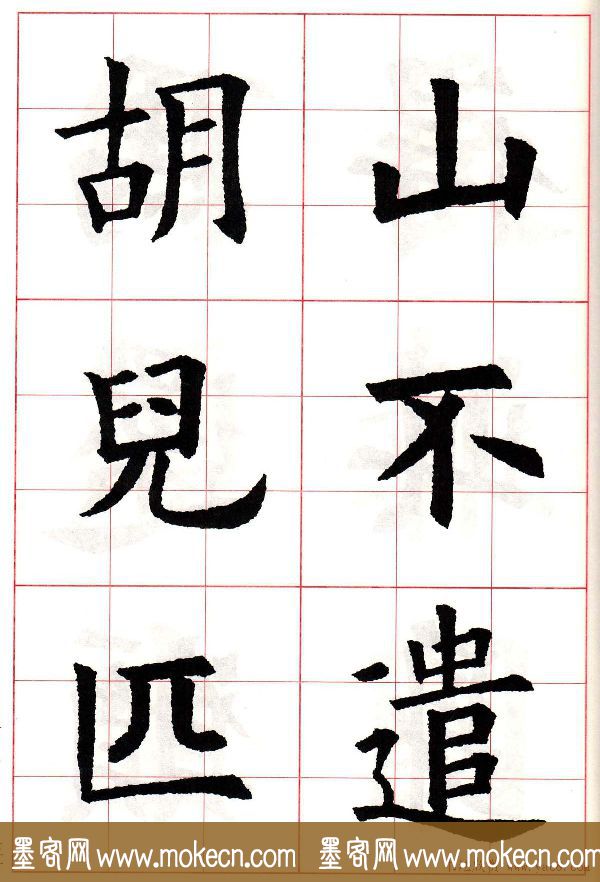 山不遣
胡兒匹
墨客网 www.mokecn.com 墨客网 www.mokecn.com